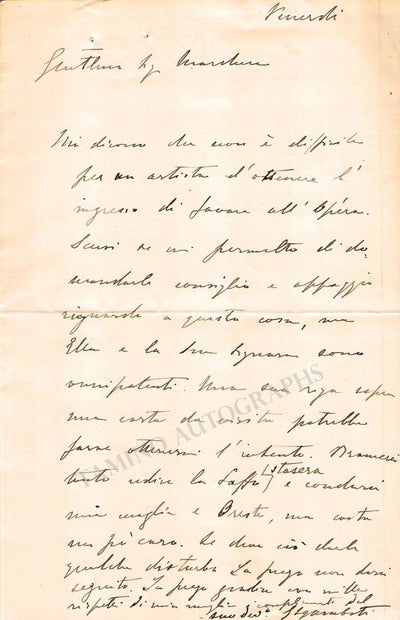 Venerdi
Gentilmo Sig. Marchese
Mi dicono che non è difficile
per un artista d'ottenere l'
ingresso di favore all' Opéra.
Scusi se mi permetto di do-
mandarle consiglio e appoggio
riguardo a questa cosa, ma
Ella e la Sua Signora sono
onnipotenti. Una sua riga sopra
una carta da visita potrebbe
farne ottenermi l'intento. Bramerei
tanto udire la Saffo stasera e condurci
mia moglie e Oreste, ma costa
un pò caro. Se deve ciò darle
qualche disturbo La prego non darvi
seguito. La prego gradire con mille
rispetti di mia moglie i complimenti del
suo dev. GSgambati
TAMINO AUTOGRAPHS